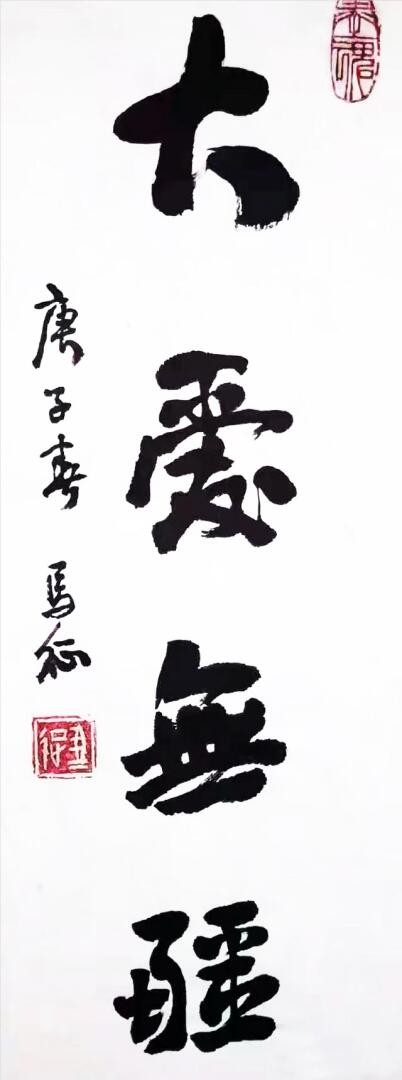 大愛無疆
庚子春 馬征